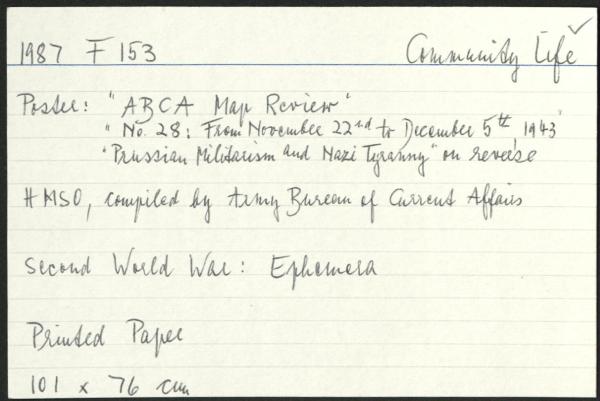 1987 F 153 Community Life
Poster: "ABCA Map Review"
"No. 28: From November 22nd to December 5th, 1943"
"Prussian Militarism and Nazi Tyranny" on reverse
HMSO, compiled by Army Bureau of Current Affairs
Second World War: Ephemera
Printed Paper
101 x 76 cm